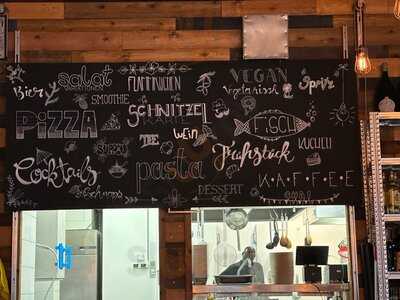 Bier
Salat
FLAMMKUCHEN
VEGAN
SMOOTHIE
Vegetarisch
Pizza
SCHNITZEL
FiSCH
TEE
wein
Cocktails
pasta
Frühstück
KUCHEN
Schnaps
DESSERT
K·A·F·F·E·E